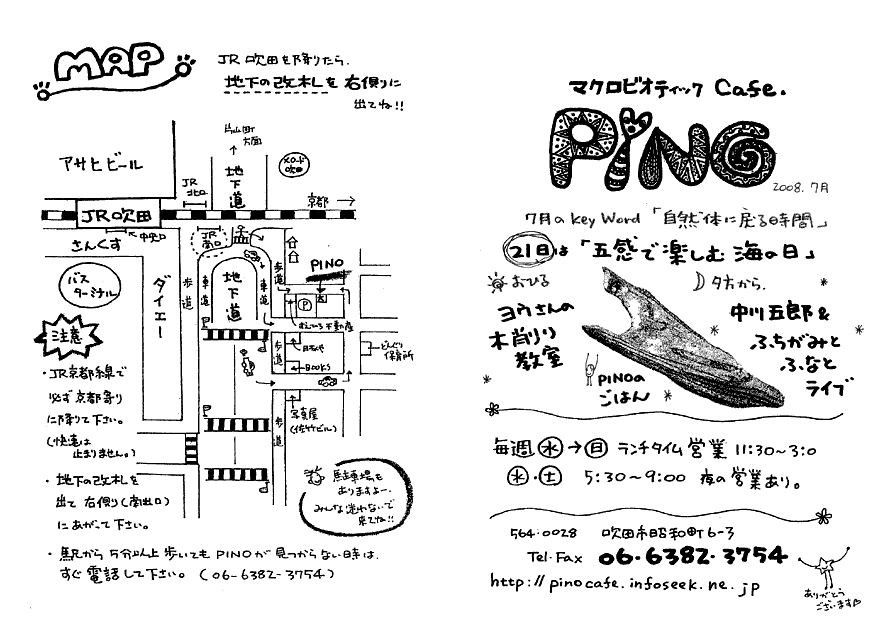 MAP
JR吹田を降りたら、
地下の改札を右側に
出てね!!
片山町
方面
アサヒビール
JR
北口
地下道
メロード
吹田
京都
JR吹田
中央口
JR
南口
さんくす
バス
ターミナル
ダイエー
歩道
車道
地下道
車道
歩道
PINO
P
注意
歩道
BOOKS
写真屋
(佐竹ビル)
どんぐり
保育所
歩道
・JR京都線で
必ず京都寄り
に降りて下さい。
(快速は
止まりません。)
・地下の改札を
出て右側(南出口)
にあがって下さい。
駐車場も
ありますよー。
みんな迷わないで
来てね!!
・駅から5分以上歩いてもPINOが見つからない時は、
すぐ電話して下さい。(06-6382-3754)
マクロビオティック Cafe.
PINO
2008.7月
7月のkey Word「自然体に戻る時間」
21日は「五感で楽しむ海の日」
おひる
ヨウさんの
木削り
教室
PINOの
ごはん
夕方から、
中川五郎&
ふちがみと
ふなと
ライブ
毎週水→日 ランチタイム営業 11:30~3:0
水・土 5:30~9:00 夜の営業あり。
564-0028 吹田市昭和町6-3
Tel・Fax 06-6382-3754
http://pinocafe.infoseek.ne.jp
ありがとう
ございます